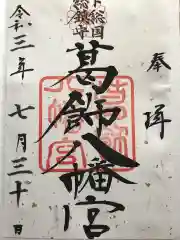 奉拝
下総国
総鎮守
葛飾八幡宮
令和三年七月三十日